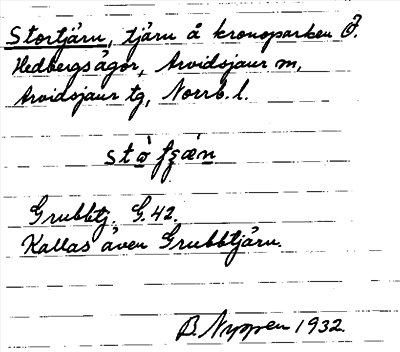 Stortjärn, tjärn å kronoparken Ö.
Hedbergsågor, Arvidsjaur m,
Arvidsjaur tg, Norrb. l.
Grubbtj. G. 42.
Kallas även Grubbtjärn.
B. Nyppen 1932.